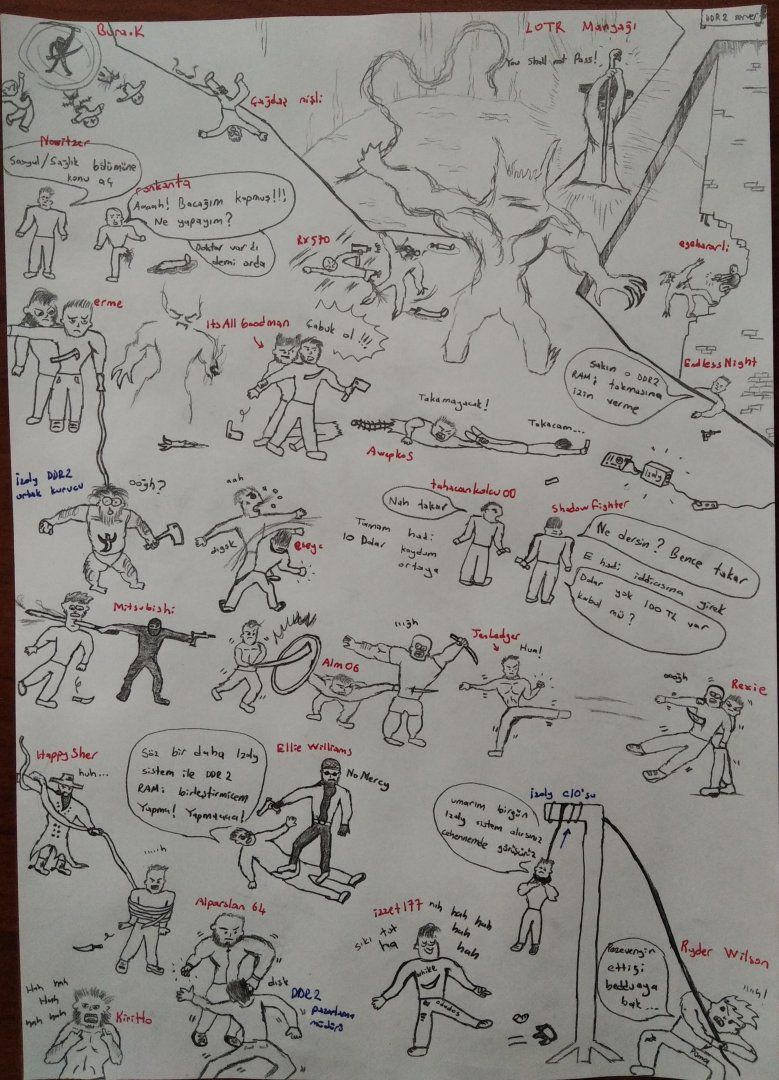 Bura.K
LOTR Manyağı
DDR2 server
You shall not Pass!
Çağdaş nişli
Nowitzer
Sosyal/Sağlık bölümüne
konu aç
Aaaah! Bacağım kopmuş!!!
Ne yapayım?
Doktor vardı
demi orda
RX570
egekararli
erme
ItsAllGoodman
Çabuk ol!!!
EndlessNight
Sakın o DDR2
RAMi takmasına
izin verme
Takamayacak!
Takacam...
Awepkos
izoly DDR2
ortak kurucu
oooğh?
aah
digok
tahacankolcu00
Nah takar
Tamam hadi
10 Dolar koydum
ortaya
ShadowFighter
Ne dersin? Bence takar
E hadi iddiasına girek
Dolar yok 100 TL var
kabul mü?
Mitsubishi
Alm06
ıııığh
JenLedger
Hua!
Rexie
oooğh
HappySher
huh...
ıııııh
Söz bir daha Izoly
sistem ile DDR2
RAMi birleştirmicem
Yapma! Yapmaaaa!
Ellie Williams
No Mercy
izoly CIO'su
umarım birgün
Izoly sistem alırsınız
cehennemde görüşürüz
Alparslan 64
dısk
DDR2
pazarlama
müdürü
izzet177
nıh hah hah
hah
hah
sıkı tut
ha
Ryder Wilson
Pezevengin
ettiği
bedduaya
bak...
Hah hah
Hah
hah hah
Kiritto